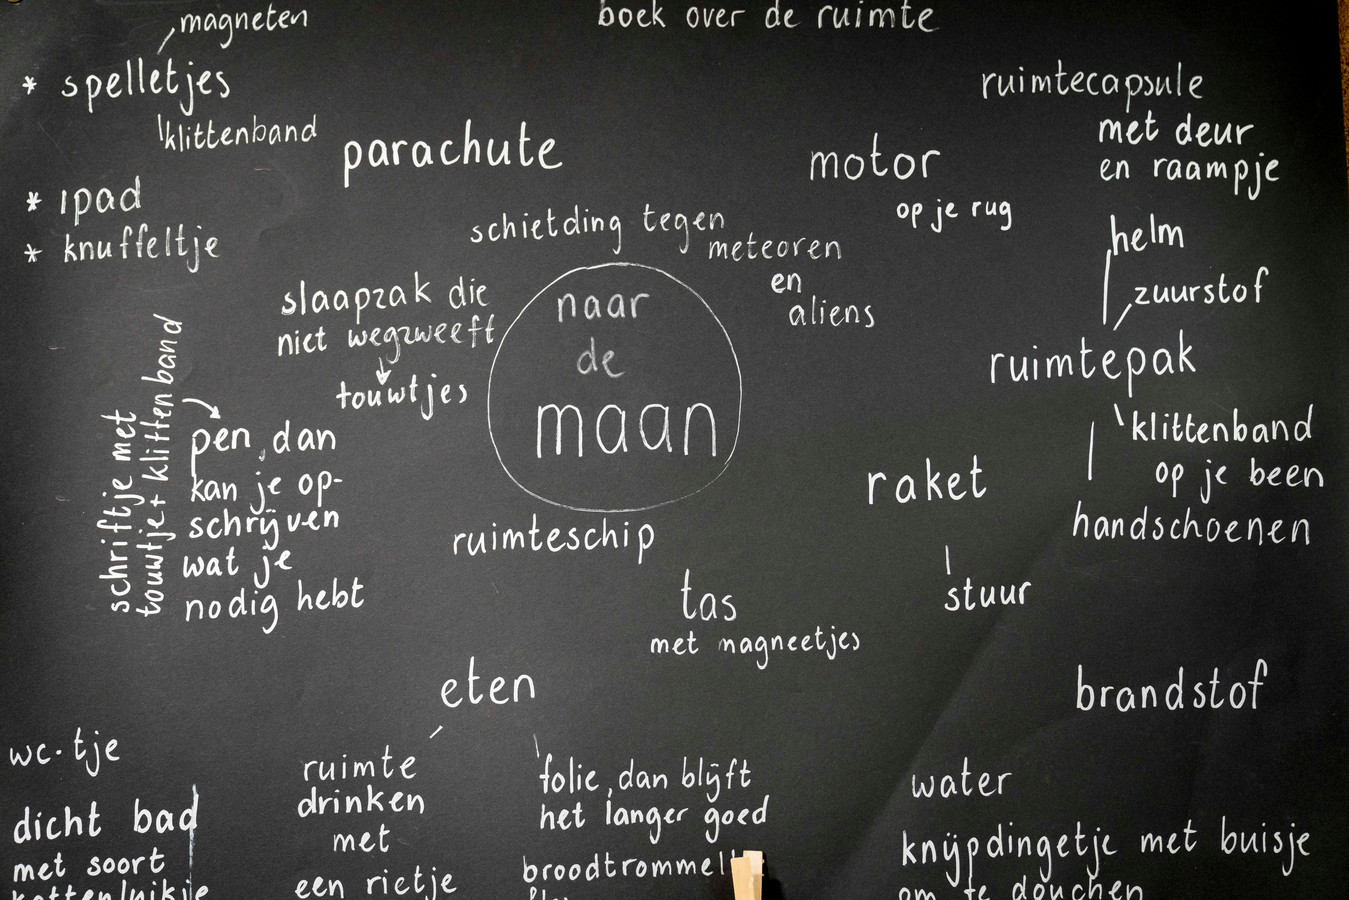 magneten
boek over de ruimte
* spelletjes
klittenband
* ipad
* knuffeltje
parachute
motor
op je rug
ruimtecapsule
met deur
en raampje
schietding tegen
meteoren
en
aliens
helm
zuurstof
ruimtepak
klittenband
op je been
handschoenen
slaapzak die
niet wegzweeft
touwtjes
naar
de
maan
schriftje met
touwtje + klittenband
pen, dan
kan je op-
schrijven
wat je
nodig hebt
ruimteschip
raket
stuur
tas
met magneetjes
eten
brandstof
wc-tje
dicht bad
met soort
kattenluikje
ruimte
drinken
met
een rietje
folie, dan blijft
het langer goed
broodtrommel
water
knijpdingetje met buisje
om te douchen